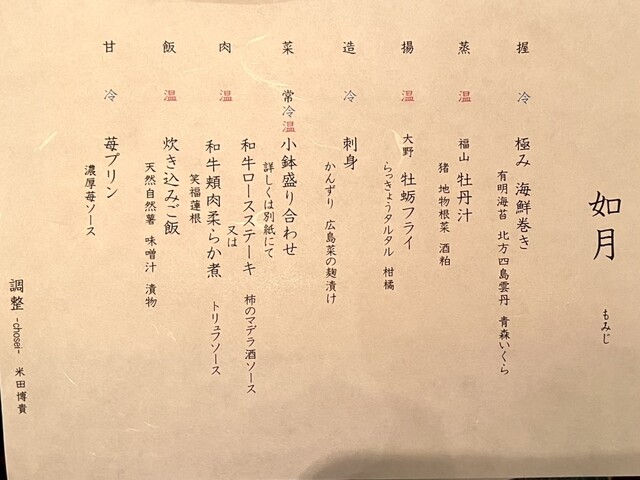 如月 もみじ
握 冷 極み 海鮮巻き
有明海苔 北方四島雲丹 青森いくら
蒸 温 福山 牡丹汁
猪 地物根菜 酒粕
揚 温 大野 牡蛎フライ
らっきょうタルタル 柑橘
造 冷 刺身
かんずり 広島菜の麹漬け
菜 常冷温 小鉢盛り合わせ
詳しくは別紙にて
肉 温 和牛ロースステーキ 柿のマデラ酒ソース
又は
和牛頬肉柔らか煮 トリュフソース
笑福蓮根
飯 温 炊き込みご飯
天然自然薯 味噌汁 漬物
甘 冷 苺プリン
濃厚苺ソース
調整 -chosei- 米田博貴